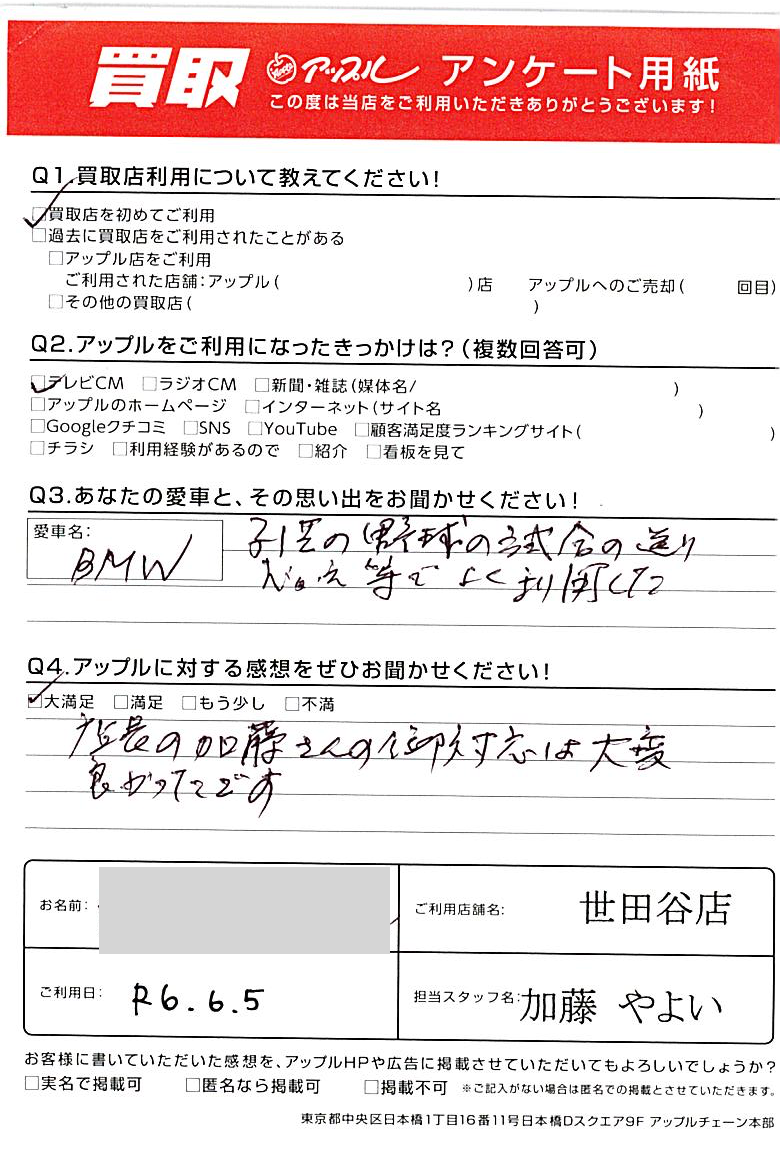 買取 アップル アンケート用紙
この度は当店をご利用いただきありがとうございます!
Q1.買取店利用について教えてください!
☑買取店を初めてご利用
□過去に買取店をご利用されたことがある
□アップル店をご利用
ご利用された店舗:アップル( )店 アップルへのご売却( 回目)
□その他の買取店( )
Q2.アップルをご利用になったきっかけは?(複数回答可)
☑テレビCM □ラジオCM □新聞・雑誌(媒体名/ )
□アップルのホームページ □インターネット(サイト名 )
□Googleクチコミ □SNS □YouTube □顧客満足度ランキングサイト( )
□チラシ □利用経験があるので □紹介 □看板を見て
Q3.あなたの愛車と、その思い出をお聞かせください!
愛車名:
BMW
子供の野球の試合の送り
迎え等でよく利用した
Q4.アップルに対する感想をぜひお聞かせください!
☑大満足 □満足 □もう少し □不満
店長の加藤さんの御対応は大変
良かったです
お名前:
ご利用店舗名: 世田谷店
ご利用日: R6.6.5
担当スタッフ名: 加藤 やよい
お客様に書いていただいた感想を、アップルHPや広告に掲載させていただいてもよろしいでしょうか?
□実名で掲載可 □匿名なら掲載可 □掲載不可 ※ご記入がない場合は匿名での掲載とさせていただきます。
東京都中央区日本橋1丁目16番11号日本橋Dスクエア9F アップルチェーン本部